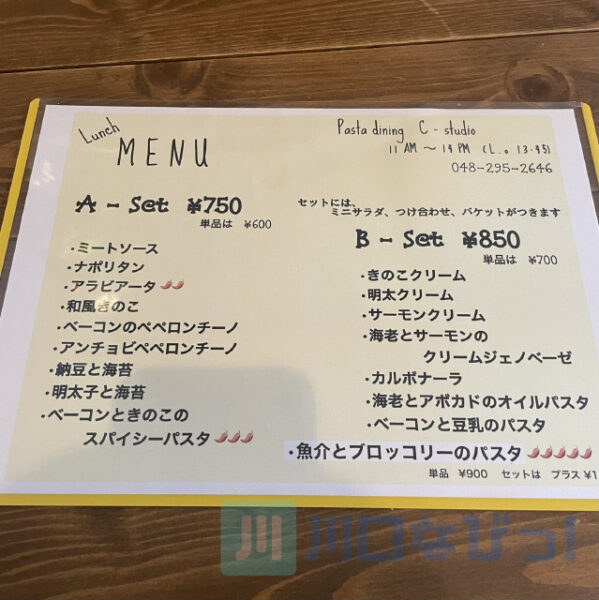 Lunch
MENU
Pasta dining C-studio
11 AM ～ 14 PM (L.o 13:45)
048-295-2646
A - Set ¥750
単品は ¥600
・ミートソース
・ナポリタン
・アラビアータ
・和風きのこ
・ベーコンのペペロンチーノ
・アンチョビペペロンチーノ
・納豆と海苔
・明太子と海苔
・ベーコンときのこの
スパイシーパスタ
セットには、
ミニサラダ、つけ合わせ、バケットがつきます
B - Set ¥850
単品は ¥700
・きのこクリーム
・明太クリーム
・サーモンクリーム
・海老とサーモンの
クリームジェノベーゼ
・カルボナーラ
・海老とアボカドのオイルパスタ
・ベーコンと豆乳のパスタ
・魚介とブロッコリーのパスタ
単品 ¥900 セットは プラス ¥1
川 川口なびっ!